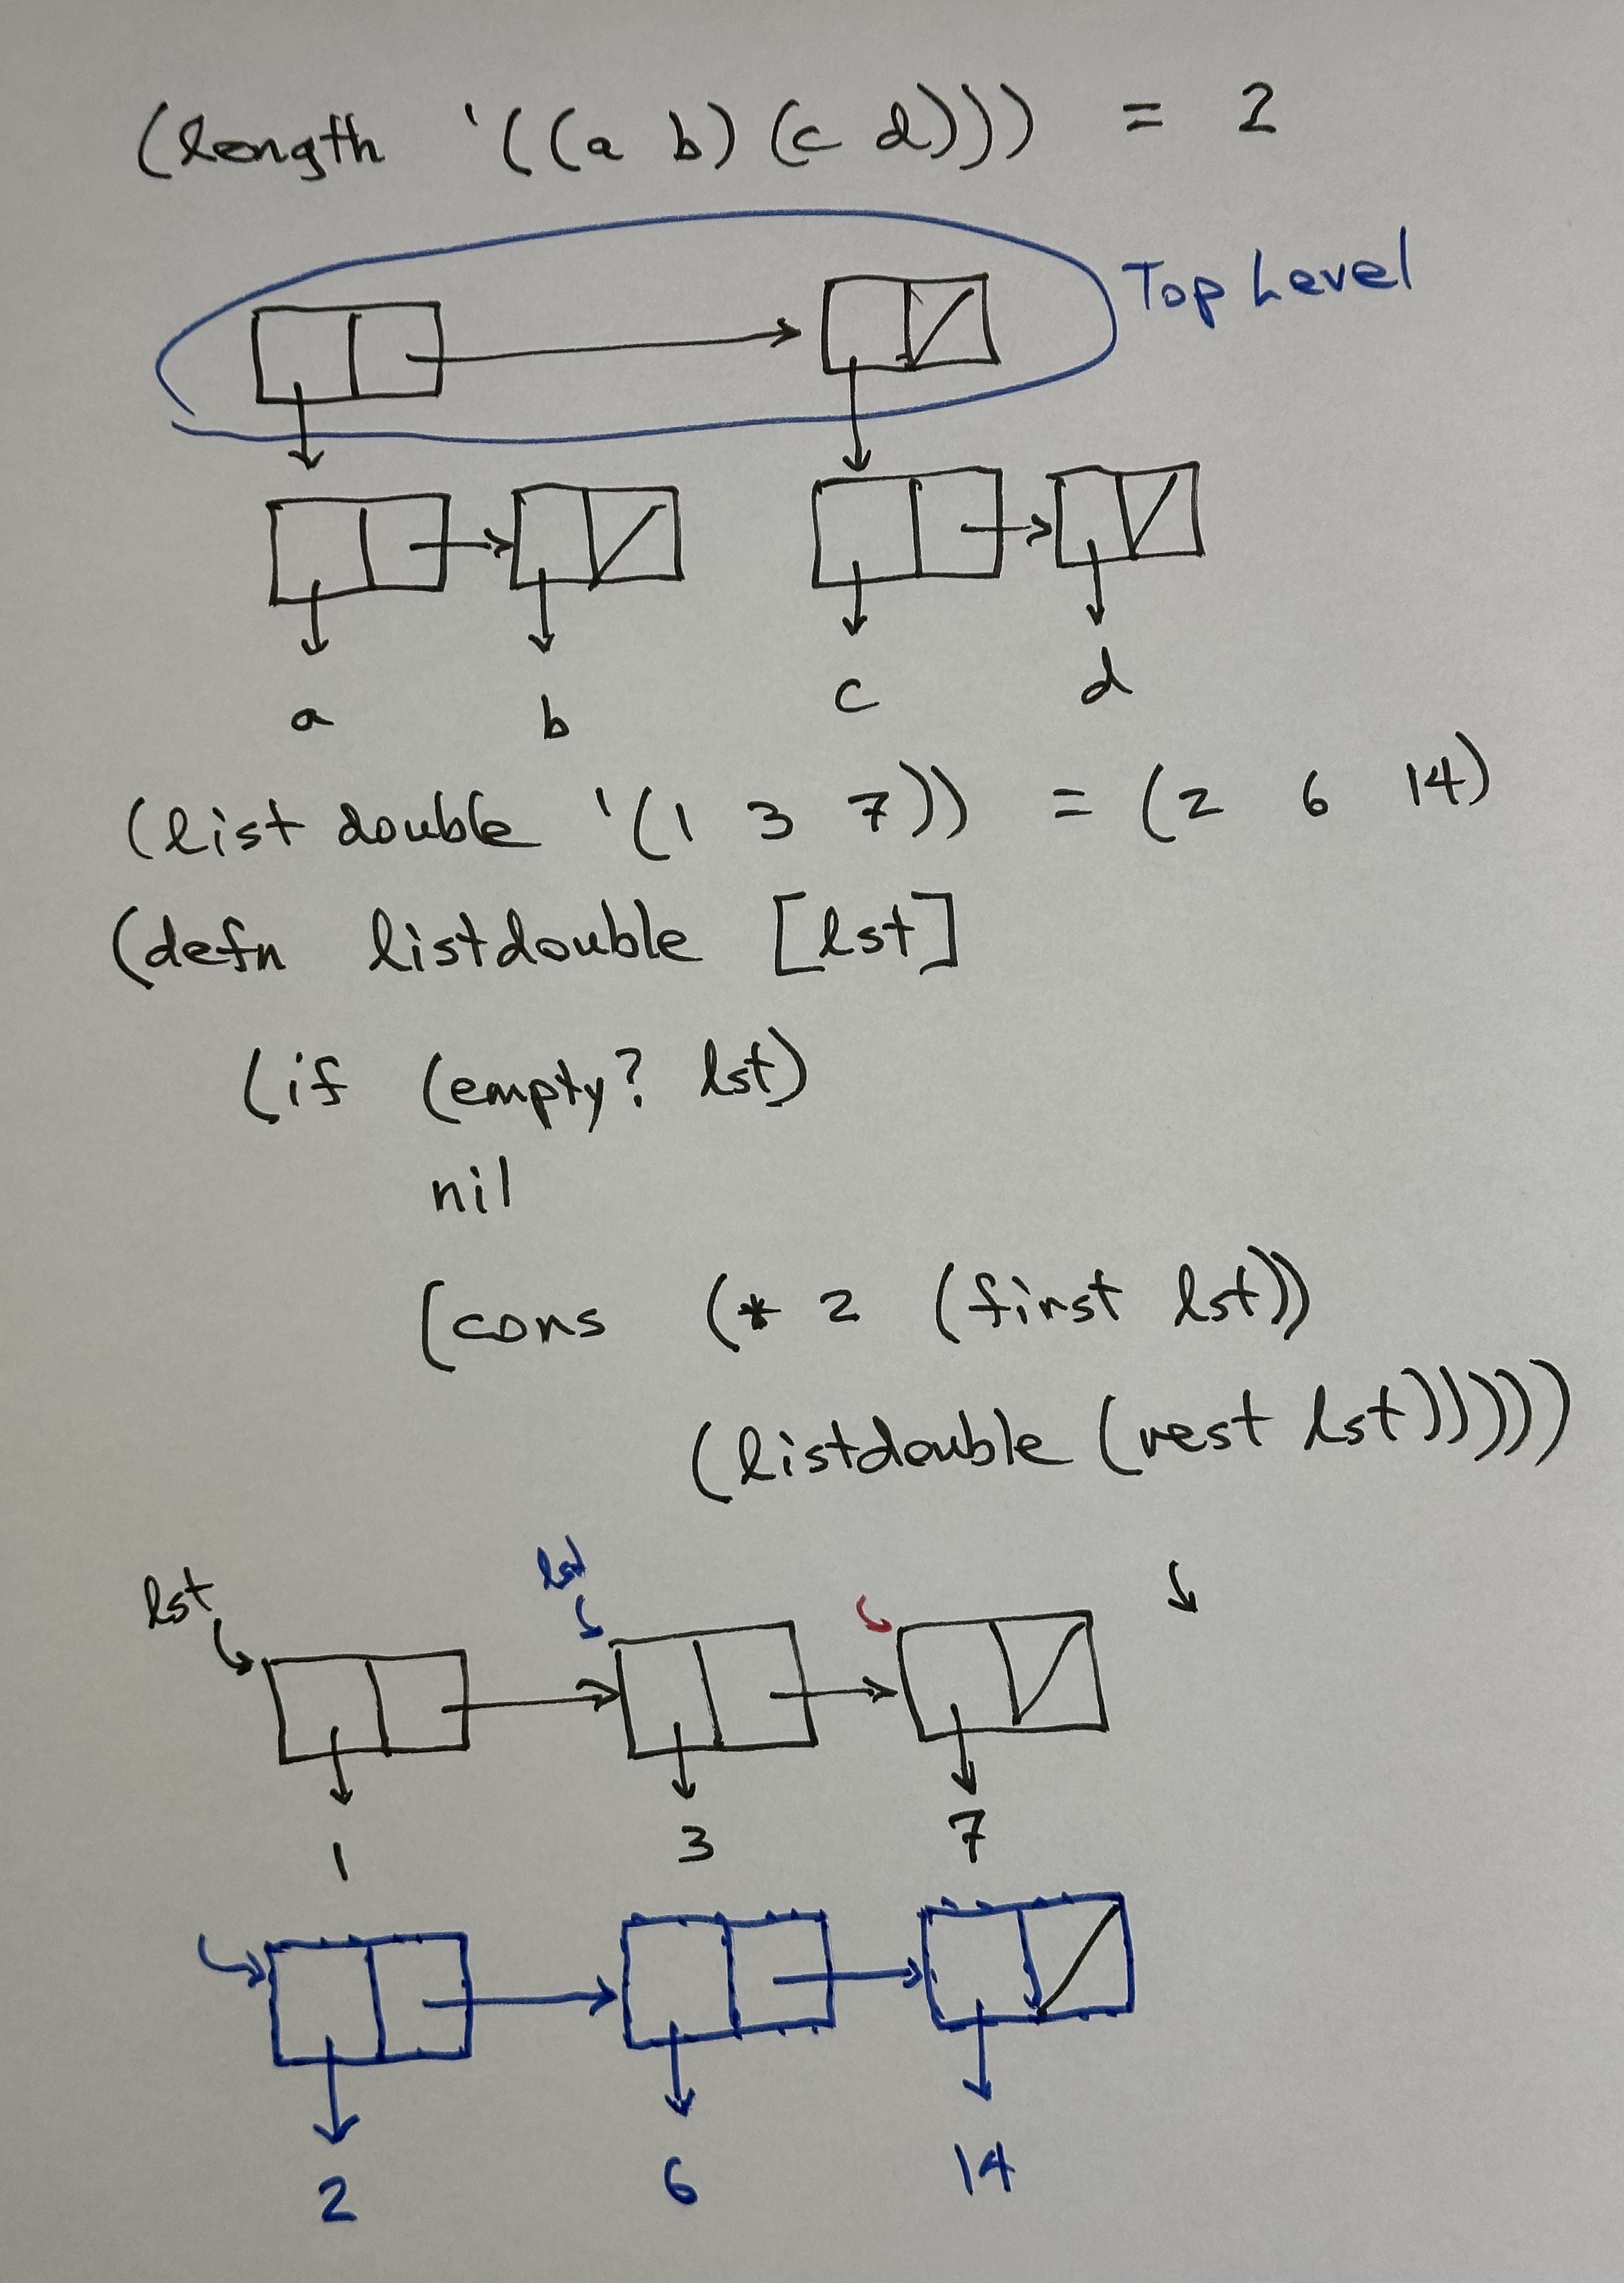 (length '((a b) (c d))) = 2
Top Level
a b c d
(listdouble '(1 3 7)) = (2 6 14)
(defn listdouble [lst]
(if (empty? lst)
nil
(cons (* 2 (first lst))
(listdouble (rest lst)))))
lst lst
1 3 7
2 6 14